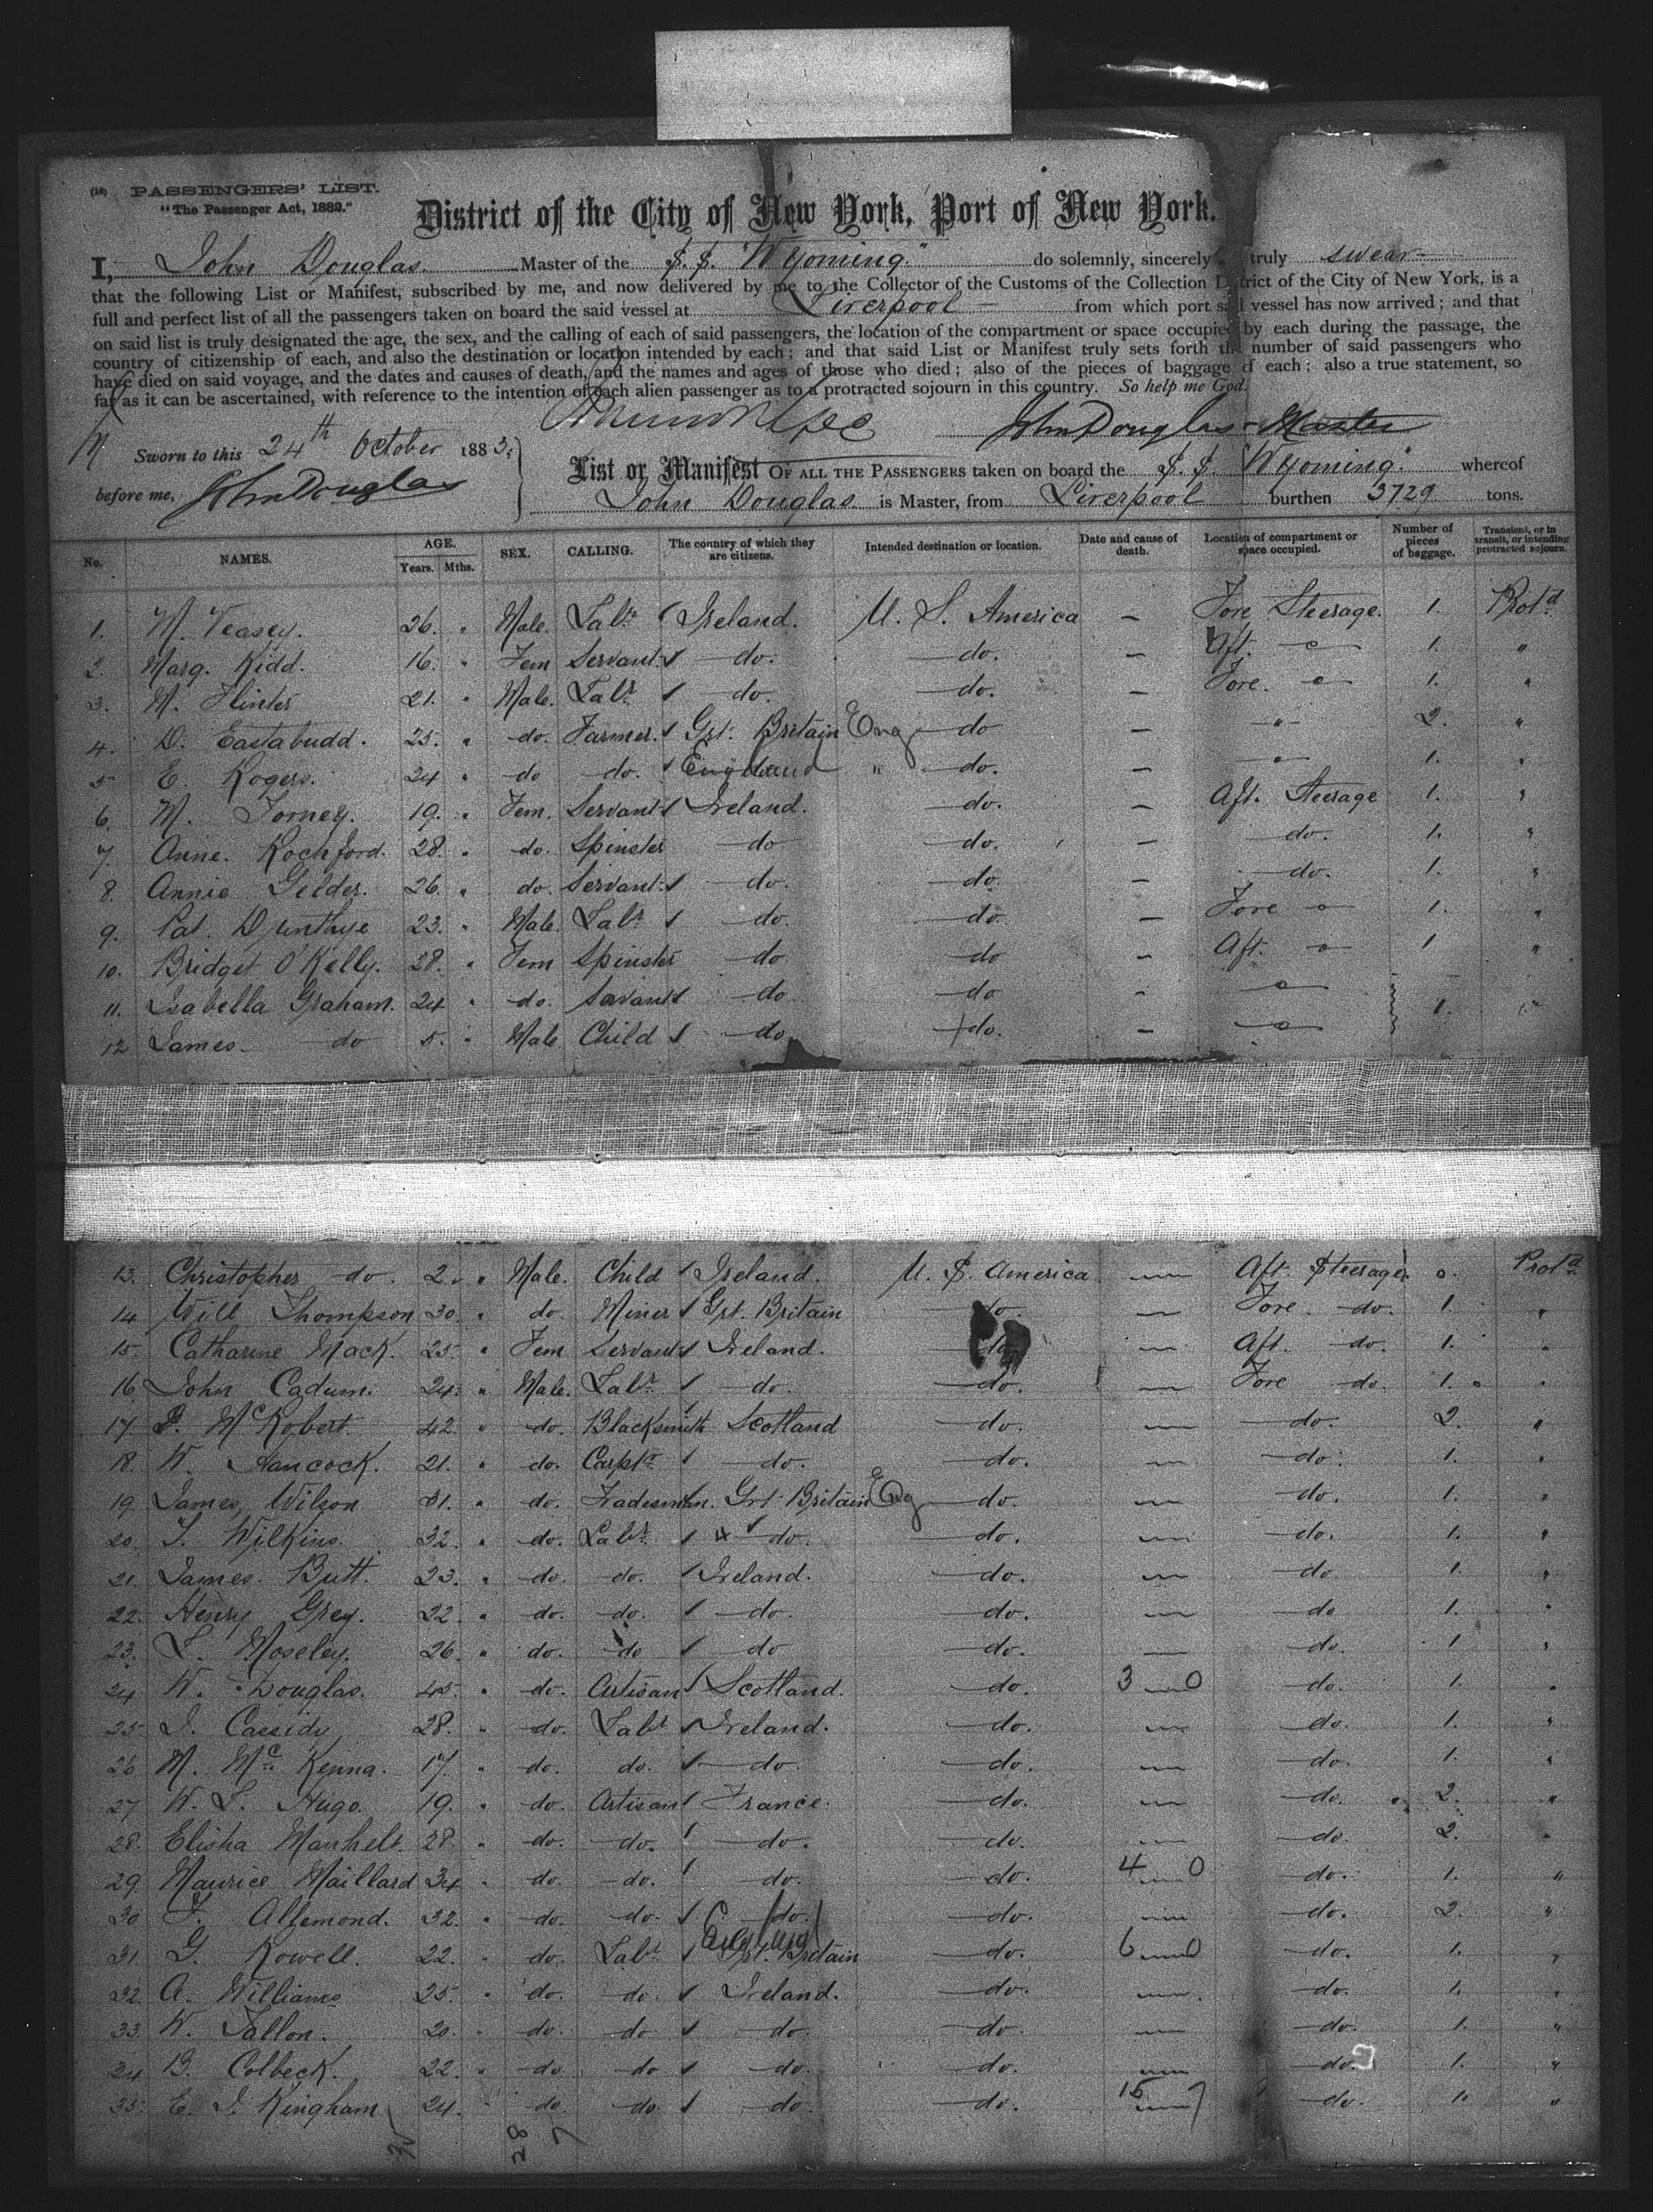 (18) PASSENGERS' LIST.
"The Passenger Act, 1882."
District of the City of New York, Port of New York.
I, John Douglas. Master of the S.S. "Wyoming." do solemnly, sincerely truly swear
that the following List or Manifest, subscribed by me, and now delivered by me to the Collector of the Customs of the Collection District of the City of New York, is a
full and perfect list of all the passengers taken on board the said vessel at Liverpool from which port said vessel has now arrived; and that
on said list is truly designated the age, the sex, and the calling of each of said passengers, the location of the compartment or space occupied by each during the passage, the
country of citizenship of each, and also the destination or location intended by each; and that said List or Manifest truly sets forth the number of said passengers who
have died on said voyage, and the dates and causes of death, and the names and ages of those who died; also of the pieces of baggage of each; also a true statement, so
far as it can be ascertained, with reference to the intention of each alien passenger as to a protracted sojourn in this country. So help me God.
John Douglas Master
Sworn to this 24th October 1883;
before me, John Douglas
List or Manifest OF ALL THE PASSENGERS taken on board the S.S. "Wyoming." whereof
John Douglas is Master, from Liverpool burthen 3729 tons.
No. NAMES. AGE. Years. Mths. SEX. CALLING. The country of which they are citizens. Intended destination or location. Date and cause of death. Location of compartment or space occupied. Number of pieces of baggage. Transient, or in transit, or intending protracted sojourn.
1. M. Veasey. 26. " Male. Labr. Ireland. U. S. America — Fore Steerage. 1. Protd
2. Marg. Kidd. 16. " Fem Servant. do. do. — Aft. 1. "
3. M. Flinter 21. " Male. Labr. do. do. — Fore. 1. "
4. D. Eastabudd. 25. " do. Farmer. Grt. Britain Eng do — " 2. "
5 E. Rogers. 24 " do do. England " do. — 1. "
6. M. Torney. 19. " Fem. Servant Ireland. do. — Aft. Steerage 1. "
7. Anne. Rochford. 28. " do. Spinster do do. — do. 1. "
8. Annie Gelder. 26. " do. Servant. do. do. — do. 1. "
9. Pat. 23. " Male. Labr do. do. — Fore 1. "
10. Bridget O'Kelly. 28. " Fem Spinster do do — Aft. 1 "
11. Isabella Graham. 24 " do. Servant do do - 1. "
12 James do 5. " Male Child do do. —
13. Christopher do. 2. " Male. Child Ireland. U. S. America — Aft. Steerage 0. Protd
14 Will Thompson 30. " do. Miner Grt. Britain do. — Fore do. 1. "
15. Catharine Mack. 25. " Fem Servant Ireland. do. — Aft. do. 1. "
16 John Cadum. 24. " Male. Labr. do. do. — Fore do. 1. "
17. McRobert. 42. " do. Blacksmith Scotland do. — do. 2. "
18. W. Hancock. 21. " do. Carptr do. do. — do. 1. "
19. James Wilson 31. " do. Tradesman. Grt. Britain Eng do. — do. 1. "
20. Wilkins. 32. " do. Labr. do. do. — do. 1. "
21. James. Butt. 23. " do. do. Ireland. do. — do 1. "
22. Henry Grey. 22. " do. do. do. do. — do 1. "
23. L. Moseley. 26. " do. do do do. — do. 1 "
24 W. Douglas. 45. " do. Artisan Scotland. do. 3 — 0 do. 1. "
25. Cassidy 28. " do. Labr Ireland. do. — do. 1. "
26 M. McKenna. 17. " do. do. do. do. — do. 1. "
27 W. L. Hugo. 19. " do. Artisan France. do. — do. 2. "
28. Elisha 28. " do. do. do. do. — do. 2. "
29 Maurice Maillard 34 " do. do. do. do. 4 — 0 do. 1. "
30 Allemond. 32. " do. do. do. do. — do. 2. "
31. G. Rowell. 22. " do. Labr England Grt. Britain do. 6 — 0 do. 1. "
32. A. Williams 25. " do. do. Ireland. do. — do. 1. "
33. W. Tallon. 20. " do. do do. do. — do. 1. "
34 B. Colbeck. 22. " do do do. do. — do. 1. "
35. E. J. Kingham 24. " do. do. do. do. 15 — 7 do. 1. "
28 7